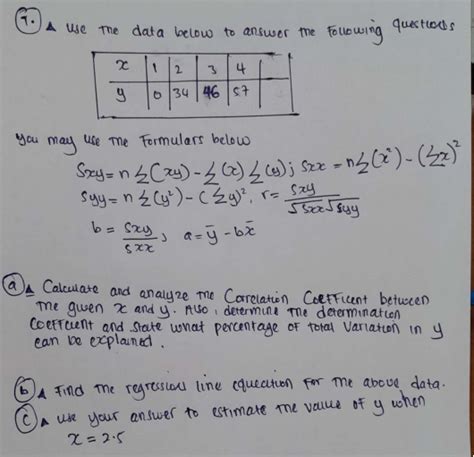 7. Use The data below to answer The Following Questions
x 1 2 3 4
y 0 34 46 57
You may use The Formulars below
Sxy = n∑(xy) - ∑(x)∑(y); Sxx = n∑(x²) - (∑x)²
Syy = n∑(y²) - (∑y)², r = Sxy / √Sxx √Syy
b = Sxy / Sxx, a = ȳ - bx̄
a) Calculate and analyze The Correlation Coefficent between
The given x and y. Also, determine The determination
Coeffcient and State what percentage of total variation in y
can be explained.
b) Find The regression line equeation For the above data.
c) use your answer to estimate The value of y when
x = 2.5